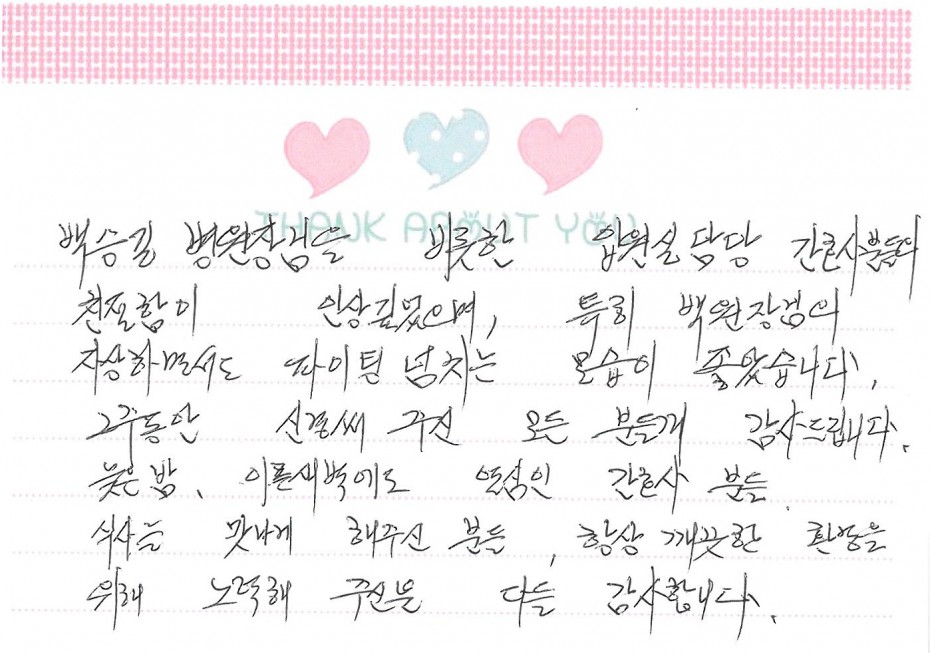 THANK ABOUT YOU
백승길 병원장님을 비롯한 입원실 담당 간호사분들의
친절함이 인상깊었으며, 특히 백원장님의
자상하면서도 파이팅 넘치는 모습이 좋았습니다.
그동안 신경써 주신 모든 분들께 감사드립니다.
늦은 밤, 이른새벽에도 열심인 간호사 분들.
식사를 맛나게 해주신 분들, 항상 깨끗한 환경을
위해 노력해 주신분 다들 감사합니다.